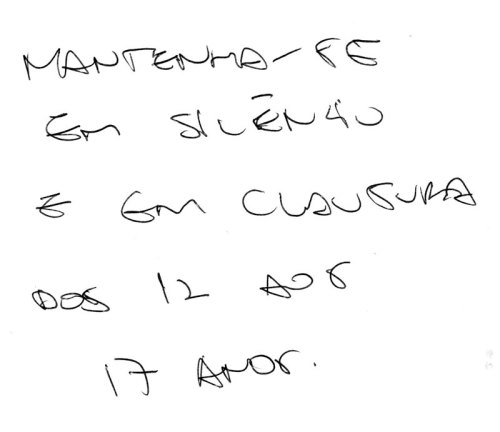 MANTENHA-SE
EM SILÊNCIO
E EM CLAUSURA
DOS 12 AOS
17 ANOS.